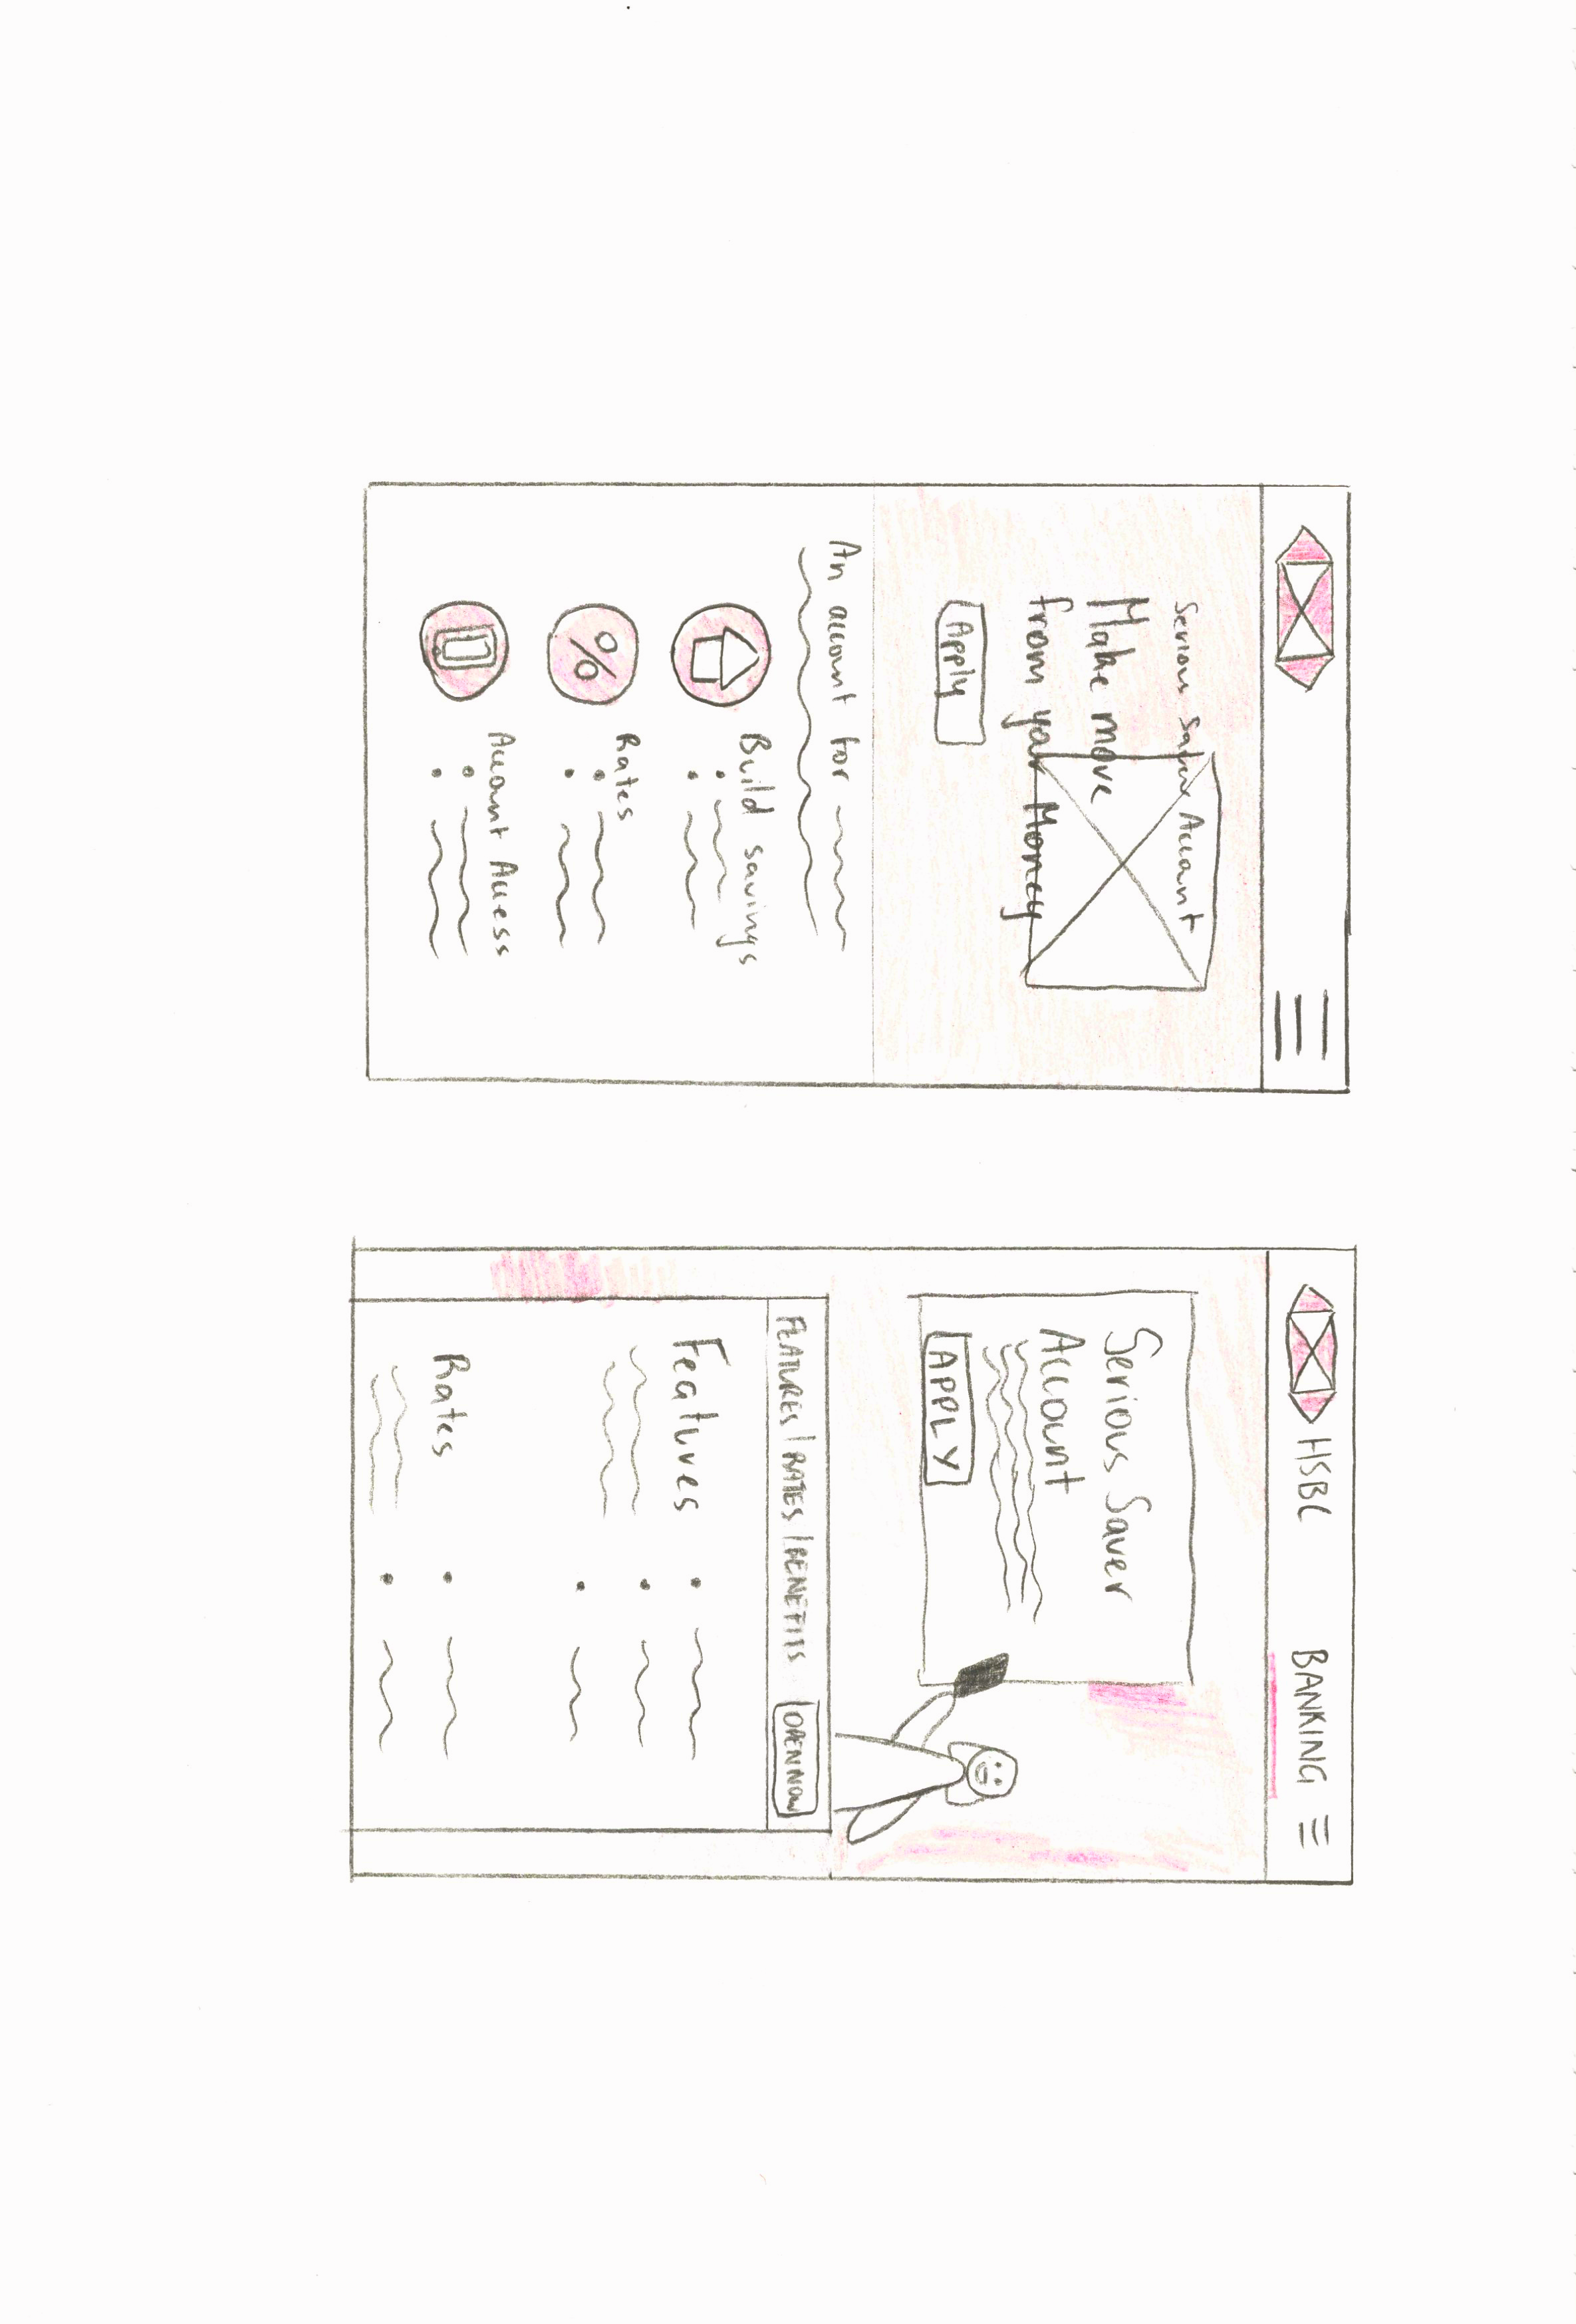 Serious Saver Account
Make move
from your Money
Apply
An account for
Build savings
Rates
Account Access
HSBC
BANKING
Serious Saver
Account
APPLY
FEATURES | RATES | BENEFITS
OPEN NOW
Features
Rates